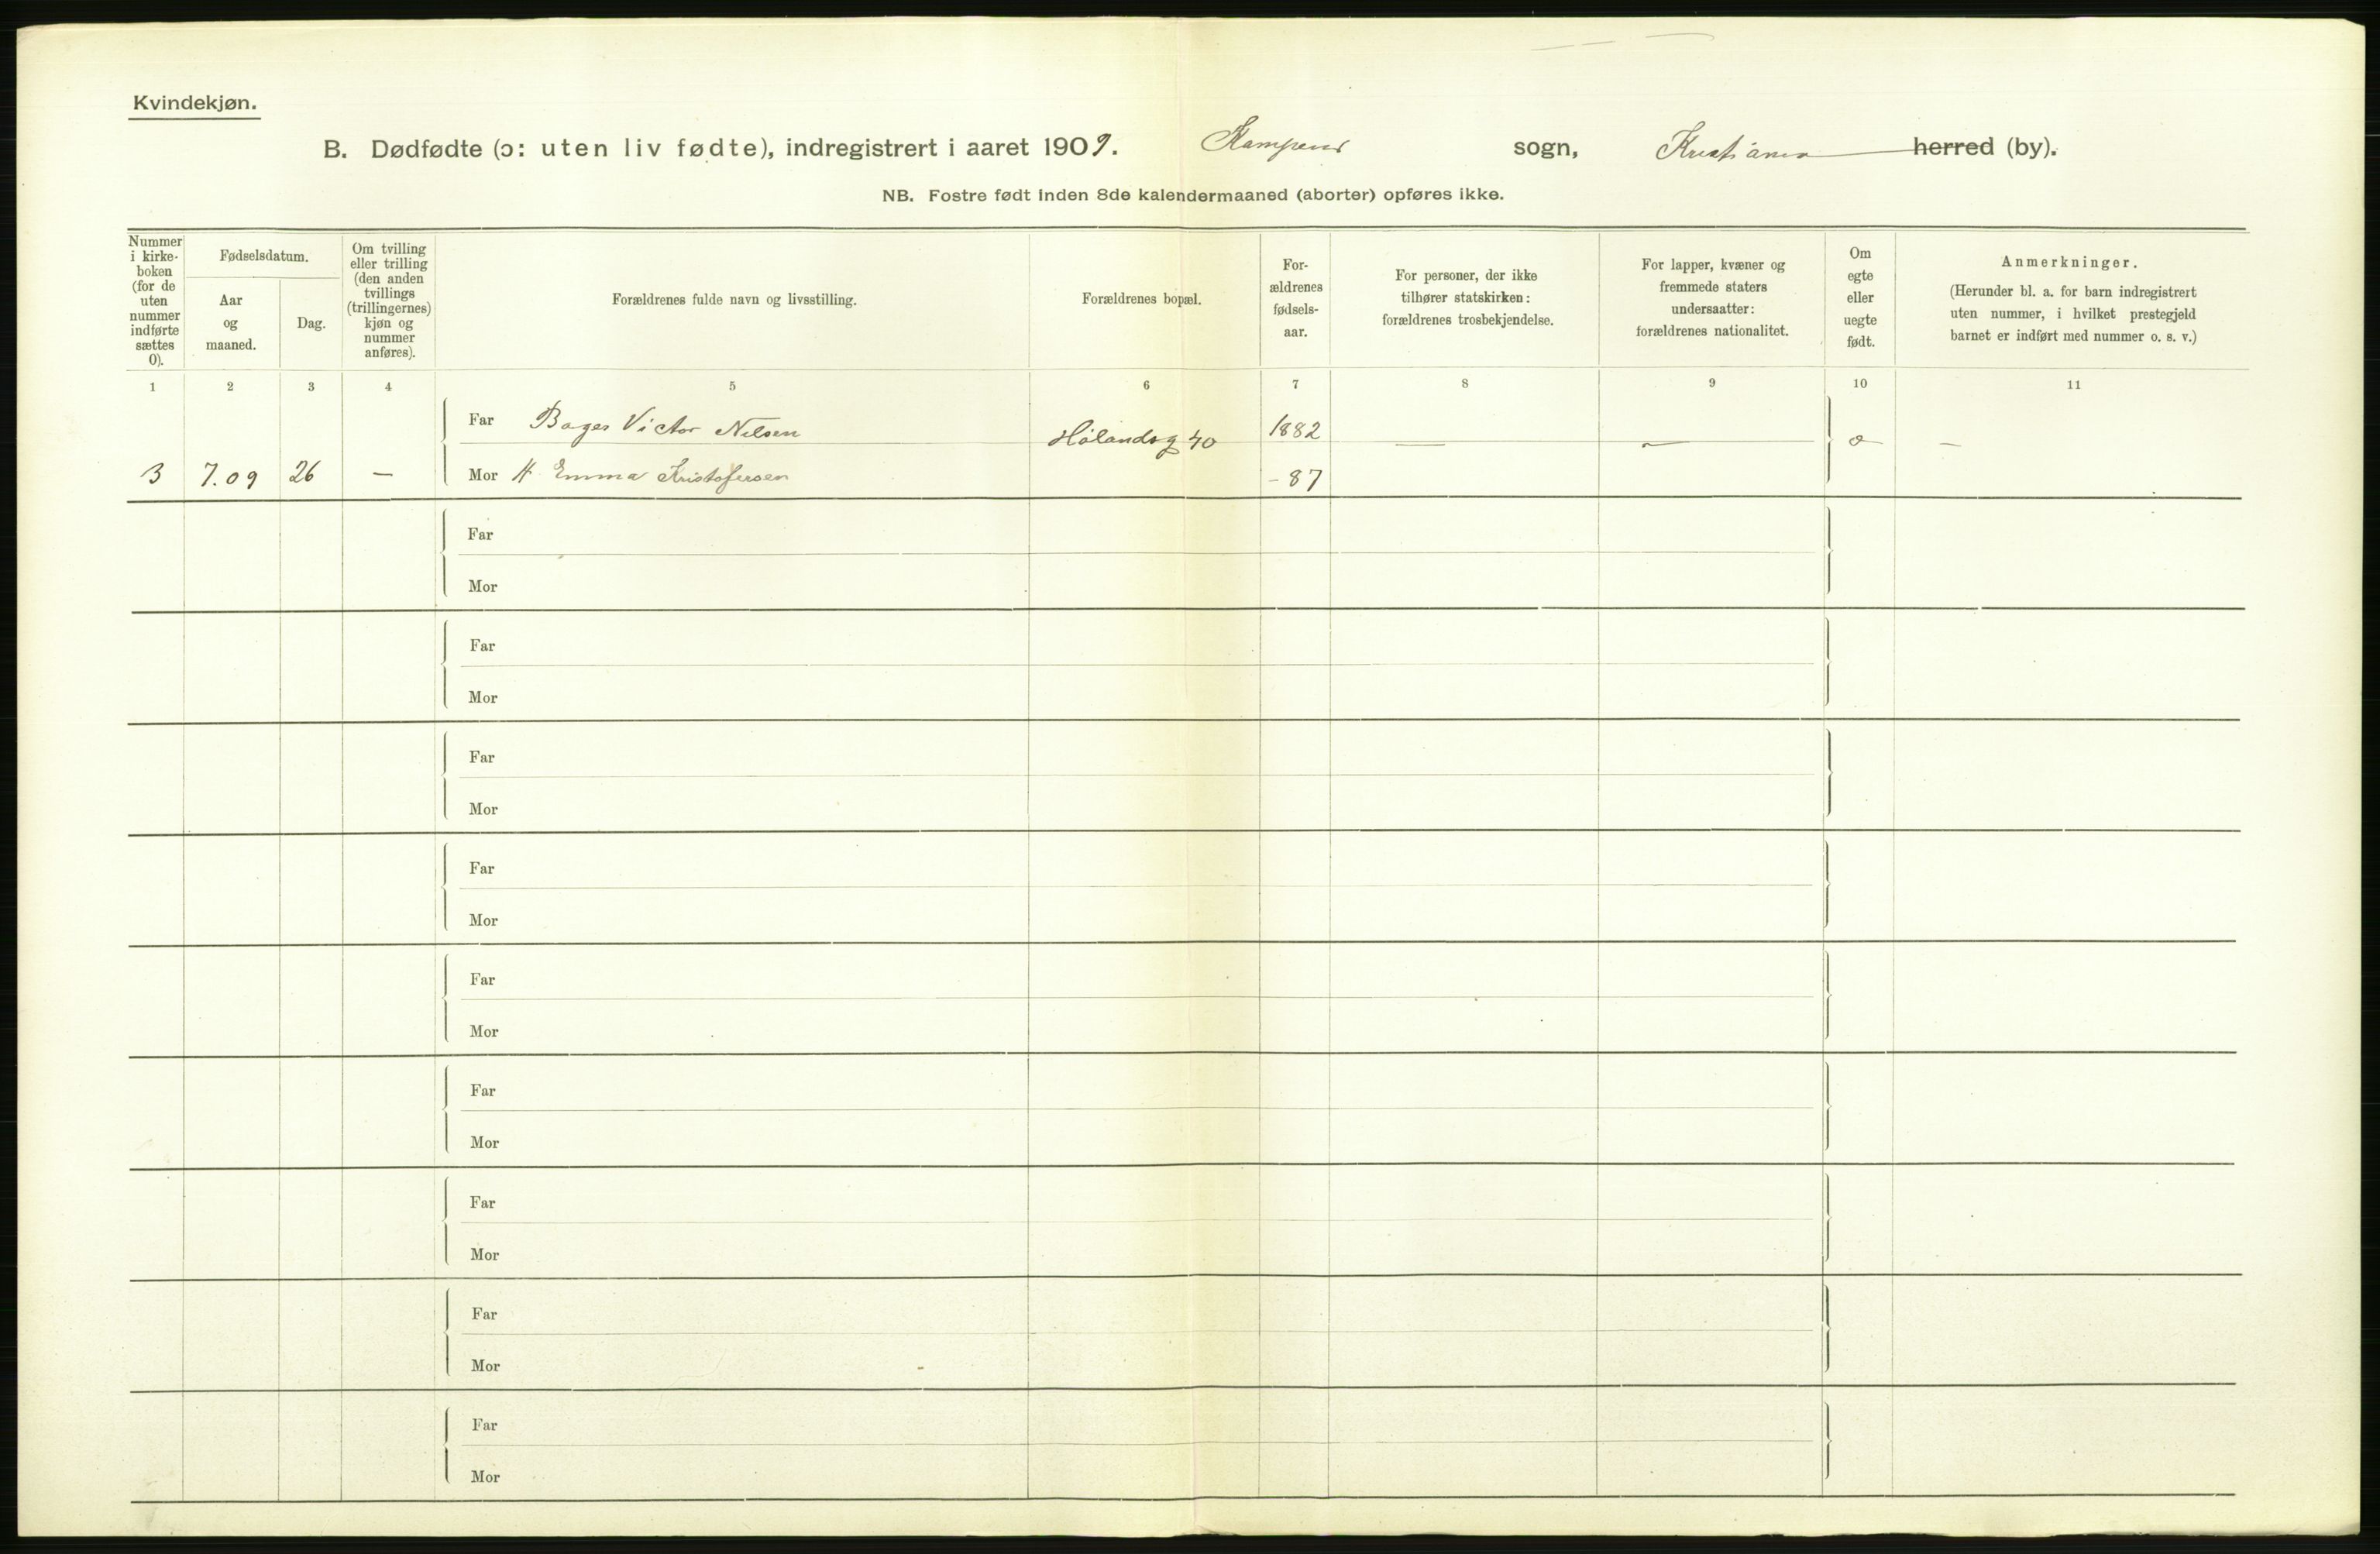 Kvindekjøn.
B. Dødfødte (ɔ: uten liv fødte), indregistrert i aaret 1909. Kampens sogn, Kristiania herred (by).
NB. Fostre født inden 8de kalendermaaned (aborter) opføres ikke.
Nummer i kirke-boken (for de uten nummer indførte sættes 0).
Fødselsdatum.
Aar og maaned.
Dag.
Om tvilling eller trilling (den anden tvillings (trillingernes) kjøn og nummer anføres).
Forældrenes fulde navn og livsstilling.
Forældrenes bopæl.
For-ældrenes fødsels-aar.
For personer, der ikke tilhører statskirken: forældrenes trosbekjendelse.
For lapper, kvæner og fremmede staters undersaatter: forældrenes nationalitet.
Om egte eller uegte født.
Anmerkninger.
(Herunder bl. a. for barn indregistrert uten nummer, i hvilket prestegjeld barnet er indført med nummer o. s. v.)
1 2 3 4 5 6 7 8 9 10 11
Far Bager Victor Nilsen Hølandsg 40 1882 — — —
3 7.09 26 — Mor H. Emma Kristofersen - 87
Far
Mor
Far
Mor
Far
Mor
Far
Mor
Far
Mor
Far
Mor
Far
Mor
Far
Mor
Far
Mor